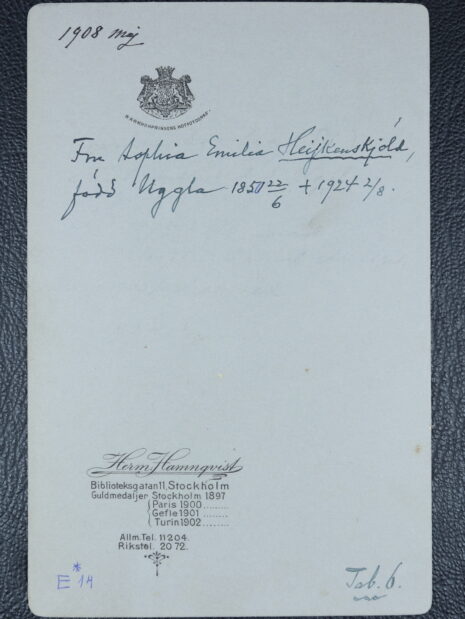 1908 maj
KRONPRINSENS HOFFOTOGRAF.
Fru Sophia Emilia Heijkenskjöld,
född Uggla 1850 22/6 + 1924 2/8.
Herm. Hamnqvist
Biblioteksgatan 11, Stockholm
Guldmedaljer Stockholm 1897
Paris 1900 ........
Gefle 1901 ........
Turin 1902 ........
Allm. Tel. 11204.
Rikstel. 20 72.
E * 14
Tab. 6.